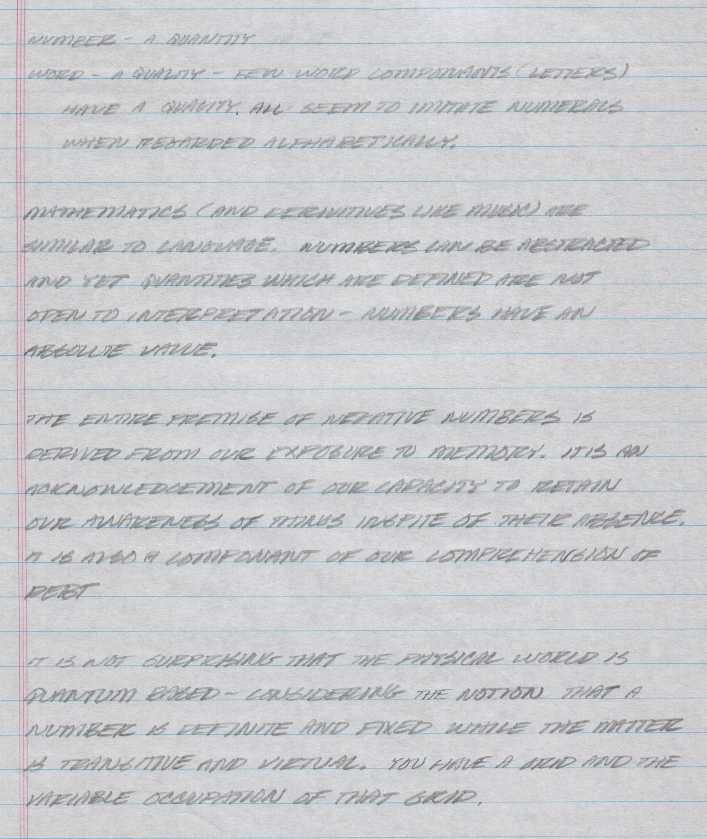 NUMBER - A QUANTITY
WORD - A QUALITY - FEW WORD COMPONANTS (LETTERS)
HAVE A QUALITY. ALL SEEM TO IMITATE NUMERALS
WHEN REGARDED ALPHABETICALLY.
MATHEMATICS (AND DERIVITIVES LIKE MUSIC) ARE
SIMILAR TO LANGUAGE. NUMBERS CAN BE ABSTRACTED
AND YET QUANTITIES WHICH ARE DEFINED ARE NOT
OPEN TO INTERPRETATION - NUMBERS HAVE AN
ABSOLUTE VALUE.
THE ENTIRE PREMISE OF NEGATIVE NUMBERS IS
DERIVED FROM OUR EXPOSURE TO MEMORY. IT IS AN
ACKNOWLEDGEMENT OF OUR CAPACITY TO RETAIN
OUR AWARENESS OF THINGS INSPITE OF THEIR ABSENCE.
IT IS ALSO A COMPONANT OF OUR COMPREHENSION OF
DEBT
IT IS NOT SURPRISING THAT THE PHYSICAL WORLD IS
QUANTUM BASED - CONSIDERING THE NOTION THAT A
NUMBER IS DEFINITE AND FIXED WHILE THE MATTER
IS TRANSITIVE AND VIRTUAL. YOU HAVE A GRID AND THE
VARIABLE OCCUPATION OF THAT GRID.